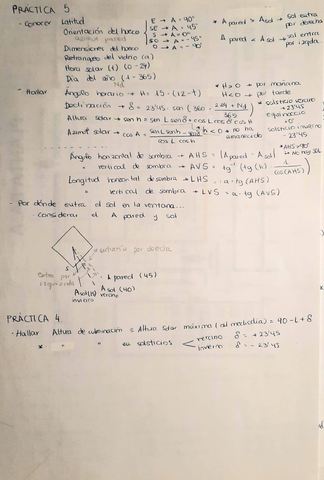 PRACTICA 5
- Conocer Latitud
Orientación del hueco
Dimensiones del hueco
Retranqueo del vidrio (a)
Hora solar (t) (0-24)
Día del año (1-365)
Nd
E → A = -90°
SE → A = -45°
S → A = 0°
SO → A = -45°
O → A = -90°
* A pared > A sol → sol entra por derecha
A pared > A sol → sol entra por izqda
- Hallar Ángulo horario → H = 15·(12-t)
* H>0 → por mañana
H<0 → por tarde
Declinación → δ = 23'45·sen (360·
284 + Nd
365
* solsticio verano
+23'45
equinoccio
=0°
solsticio invierno
-23'45
Altura solar → sen h = sen L sen δ + cos L cos δ cos H
Azimut solar → cos A = senL senh - senδ
cos L cos h
* h<0 → no ha amanecido
Ángulo horizontal de sombra → AHS = |A pared - A sol|
* AHS>90°
→ no hay sol
" vertical de sombra → AVS = tg⁻¹ (tg(h)
1
cos(AHS)
Longitud horizontal de sombra → LHS = a·tg (AHS)
" vertical de sombra → LVS = a·tg (AVS)
- Por dónde entra el sol en la ventana...
considerar el A pared y sol
entraría por derecha
S
entra por izquierda
A pared (45)
A sol (40)
verano
PRÁCTICA 4.
- Hallar Altura de culminación = Altura solar máxima (al mediodía) = 90 - L + δ
" " " en solsticios
verano δ = +23'45
invierno δ = -23'45